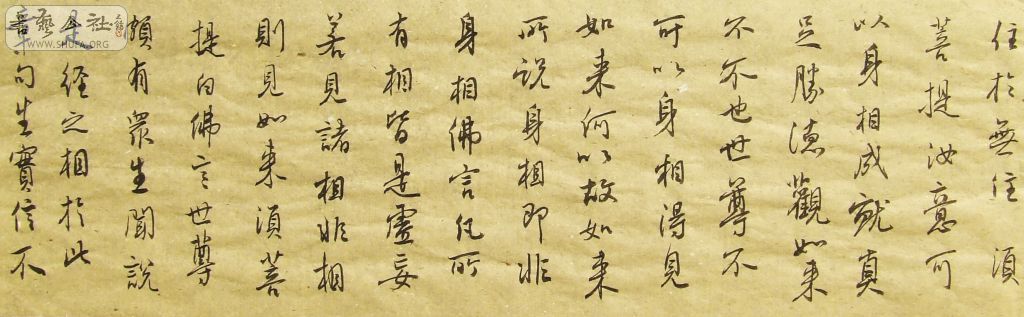 住於無住 須
菩提汝意可
以身相成就真
足勝德觀如来
不不也世尊不
可以身相得見
如来何以故如来
所説身相即非
身相佛言凡所
有相皆是虛妄
若見諸相非相
則見如来須菩
提白佛言世尊
頗有衆生聞説
是經之相於此
句生實信不
書藝公社
WWW.SHUFA.ORG